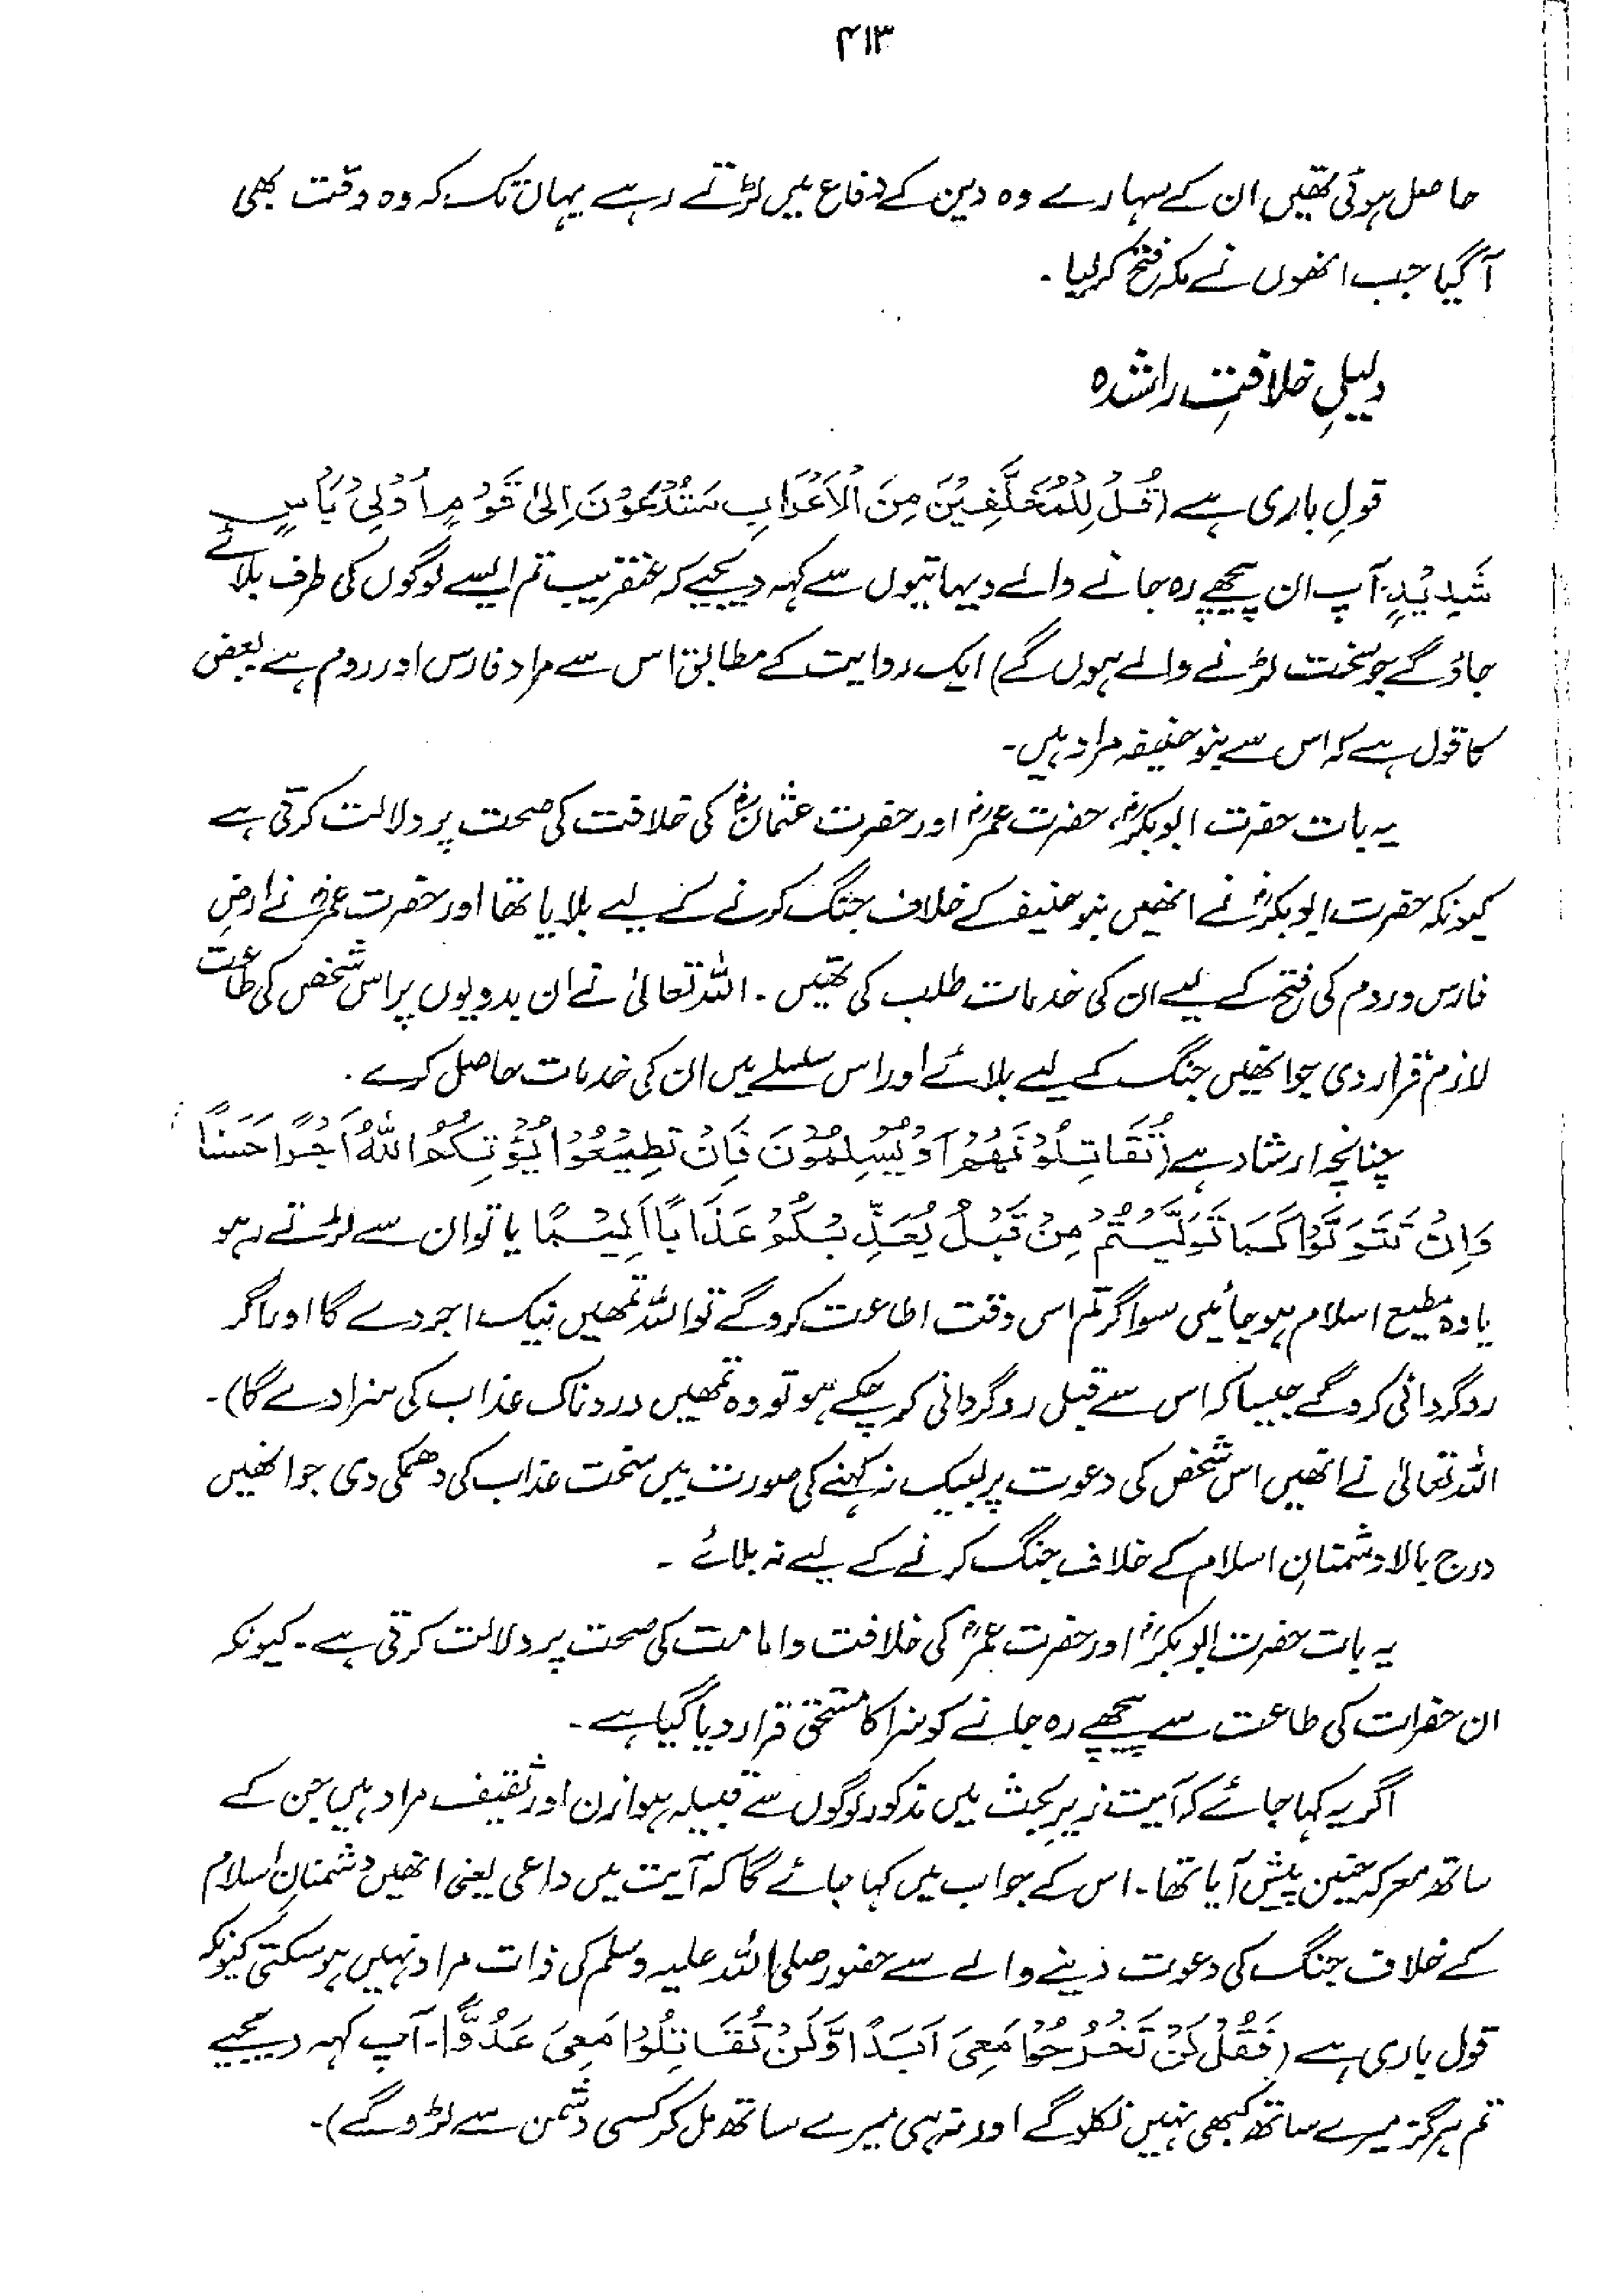 ۴۱۳
حاصل ہوئی تھیں ان کے سہارے وہ دین کے دفاع میں لڑتے رہے یہاں تک کہ وہ وقت بھی
آگیا جب انھوں نے مکہ فتح کر لیا۔
دلیلِ خلافتِ راشدہ
قولِ باری ہے (قُلْ لِلْمُخَلَّفِيْنَ مِنَ الْاَعْرَابِ سَتُدْعَوْنَ اِلىٰ قَوْمٍ اُولِىْ بَأْسٍ
شَدِيْدٍ۔ آپ ان پیچھے رہ جانے والے دیہاتیوں سے کہہ دیجیے کہ عنقریب تم ایسے لوگوں کی طرف بلائے
جاؤ گے جو سخت لڑنے والے ہوں گے) ایک روایت کے مطابق اس سے مراد فارس اور روم ہے بعض
کا قول ہے کہ اس سے بنو حنیفہ مراد ہیں۔
یہ بات حضرت ابوبکرؓ، حضرت عمرؓ اور حضرت عثمانؓ کی خلافت کی صحت پر دلالت کرتی ہے
کیونکہ حضرت ابوبکرؓ نے انھیں بنو حنیفہ کے خلاف جنگ کرنے کے لیے بلایا تھا اور حضرت عمرؓ نے ارضِ
فارس و روم کی فتح کے لیے ان کی خدمات طلب کی تھیں۔ اللہ تعالیٰ نے ان بدویوں پر اس شخص کی طاعت
لازم قرار دی جو انھیں جنگ کے لیے بلائے اور اس سلسلے میں ان کی خدمات حاصل کرے۔
چنانچہ ارشاد ہے (تُقَاتِلُوْنَهُمْ اَوْ يُسْلِمُوْنَ فَاِنْ تُطِيْعُوْا يُؤْتِكُمُ اللّٰهُ اَجْرًا حَسَنًا
وَاِنْ تَتَوَلَّوْا كَمَا تَوَلَّيْتُمْ مِنْ قَبْلُ يُعَذِّبْكُمْ عَذَابًا اَلِيْمًا یا تو ان سے لڑتے رہو
یا وہ مطیع اسلام ہو جائیں سو اگر تم اس وقت اطاعت کرو گے تو اللہ تمھیں نیک اجر دے گا اور اگر
روگردانی کرو گے جیسا کہ اس سے قبل روگردانی کر چکے ہو تو وہ تمھیں دردناک عذاب کی سزا دے گا)۔
اللہ تعالیٰ نے انھیں اس شخص کی دعوت پر لبیک نہ کہنے کی صورت میں سخت عذاب کی دھمکی دی جو انھیں
درج بالا دشمنانِ اسلام کے خلاف جنگ کرنے کے لیے نہ بلائے۔
یہ بات حضرت ابوبکرؓ اور حضرت عمرؓ کی خلافت و امامت کی صحت پر دلالت کرتی ہے۔ کیونکہ
ان حضرات کی طاعت سے پیچھے رہ جانے کو سزا کا مستحق قرار دیا گیا ہے۔
اگر یہ کہا جائے کہ آیت زیرِ بحث میں مذکور لوگوں سے قبیلہ ہوازن اور ثقیف مراد ہیں جن کے
ساتھ معرکہ حنین پیش آیا تھا۔ اس کے جواب میں کہا جائے گا کہ آیت میں داعی یعنی انھیں دشمنانِ اسلام
کے خلاف جنگ کی دعوت دینے والے سے حضور صلی اللہ علیہ وسلم کی ذات مراد نہیں ہو سکتی کیونکہ
قول باری ہے (فَقُلْ لَنْ تَخْرُجُوْا مَعِىَ اَبَدًا وَّلَنْ تُقَاتِلُوْا مَعِىَ عَدُوًّا۔ آپ کہہ دیجیے
تم ہرگز میرے ساتھ کبھی نہیں نکلو گے اور نہ ہی میرے ساتھ مل کر کسی دشمن سے لڑو گے)۔